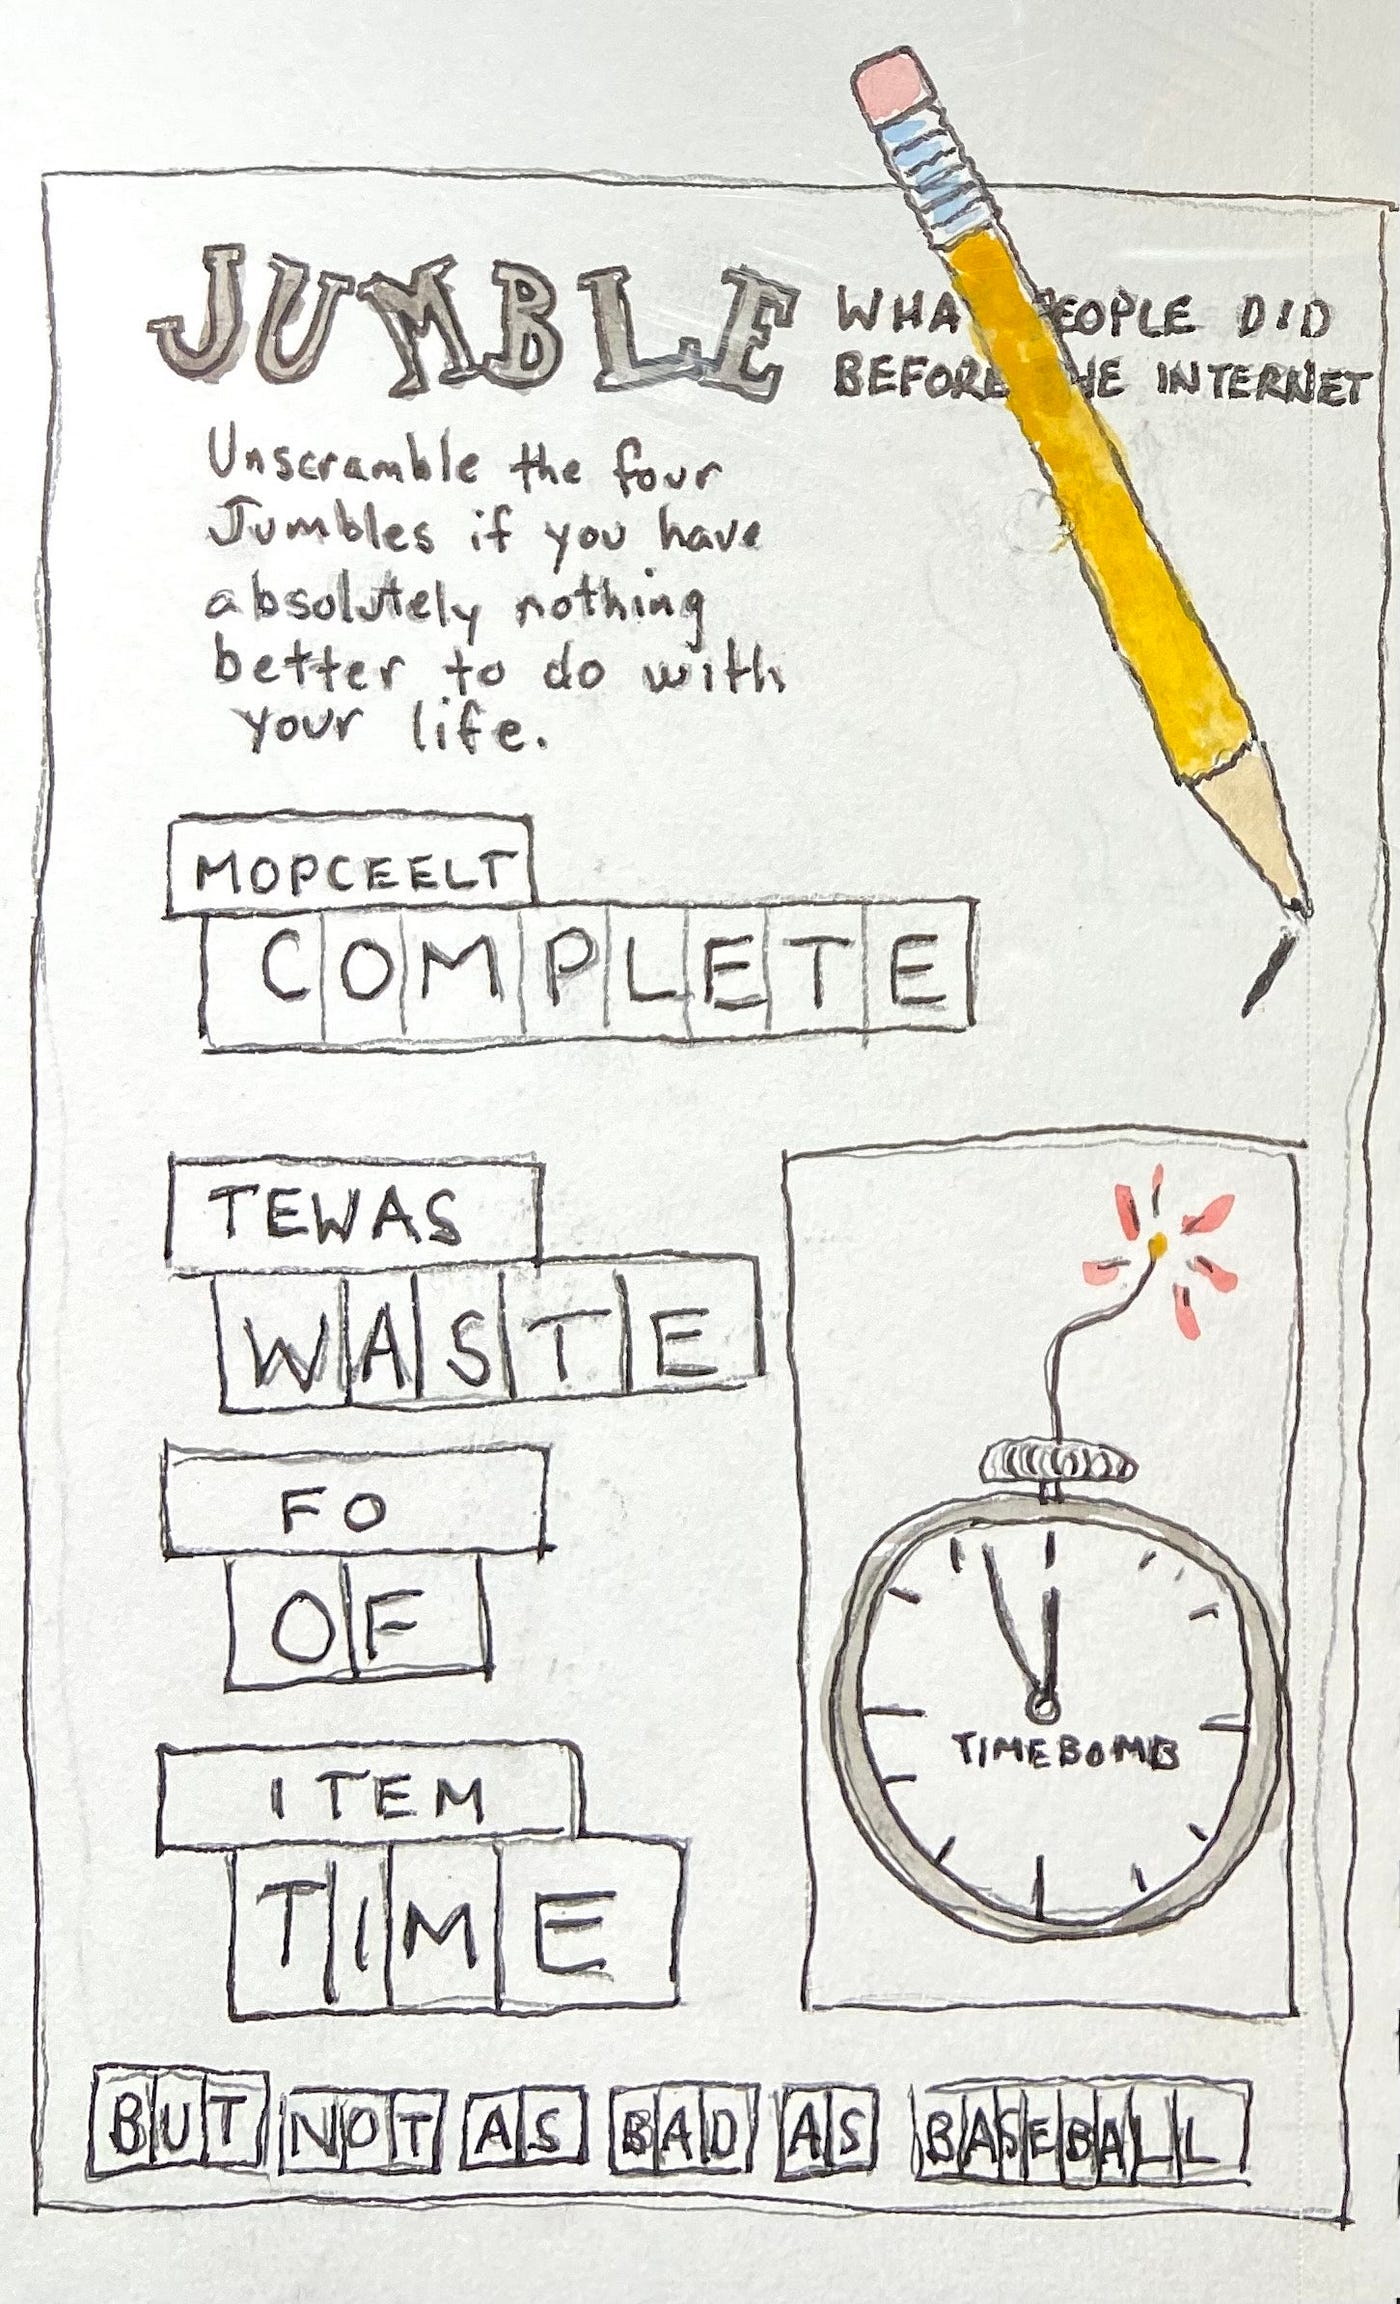 JUMBLE
WHA PEOPLE DID
BEFORE HE INTERNET
Unscramble the four
Jumbles if you have
absolutely nothing
better to do with
your life.
MOPCEELT
COMPLETE
TEWAS
WASTE
FO
OF
ITEM
TIME
TIMEBOMB
BUT NOT AS BAD AS BASEBALL